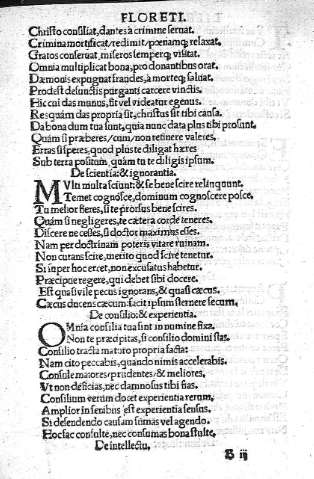 FLORETI.
Christo consiliat, dantes à crimine seruat.
Crimina mortificat, redimit, pœnamq; relaxat.
Gratos conseruat, miseros semperq; visitat.
Omnia multiplicat bona, pro donantibus orat.
Dæmonis expugnat fraudes, à morteq; saluat.
Prodest defunctis purganti carcere vinctis.
Hic cui das munus, sit vel videatur egenus.
Res quám das propria sit, christus sit tibi causa.
Da bona dum tua sunt, quia nunc data plus tibi prosunt.
Quám si præberes, cum non retinere valeres.
Erras si speres, quod plus te diligat hæres
Sub terra positum, quám tu te diligis ipsum.
De scientia: & ignorantia.
MVlti multa sciunt: & se bene scire relinquunt.
Temet cognosce, dominum cognoscere posce.
Tu melior fieres, si te prorsus bene scires.
Quám si negligeres, te cætera corde teneres.
Discere ne cesses, si doctor maximus esses.
Nam per doctrinam poteris vitare ruinam.
Non curans scire, merito quod scire tenetur.
Si super hoc erret, non excusatus habetur.
Præcipue regere, qui debet sibi docere.
Est quasi vile pecus ignorans, & quasi cæcus.
Cæcus ducens cæcum. facit ipsum sternere secum.
De consilio: & experientia.
OMnia consilia tua sint in numine fixa.
Non te præcipitas, si consilio domini stas.
Consilio tracta maturo propria facta:
Nam cito peccabis, quando nimis accelerabis.
Consule maiores, prudentes, & meliores,
Vt non deficias, nec damnosus tibi fias.
Consilium verum docet experientia rerum,
Amplior in senibus est experientia sensus.
Si defendendo causam sumas vel agendo.
Hoc fac consulte, nec consumas bona stulte.
De intellectu,
B iij